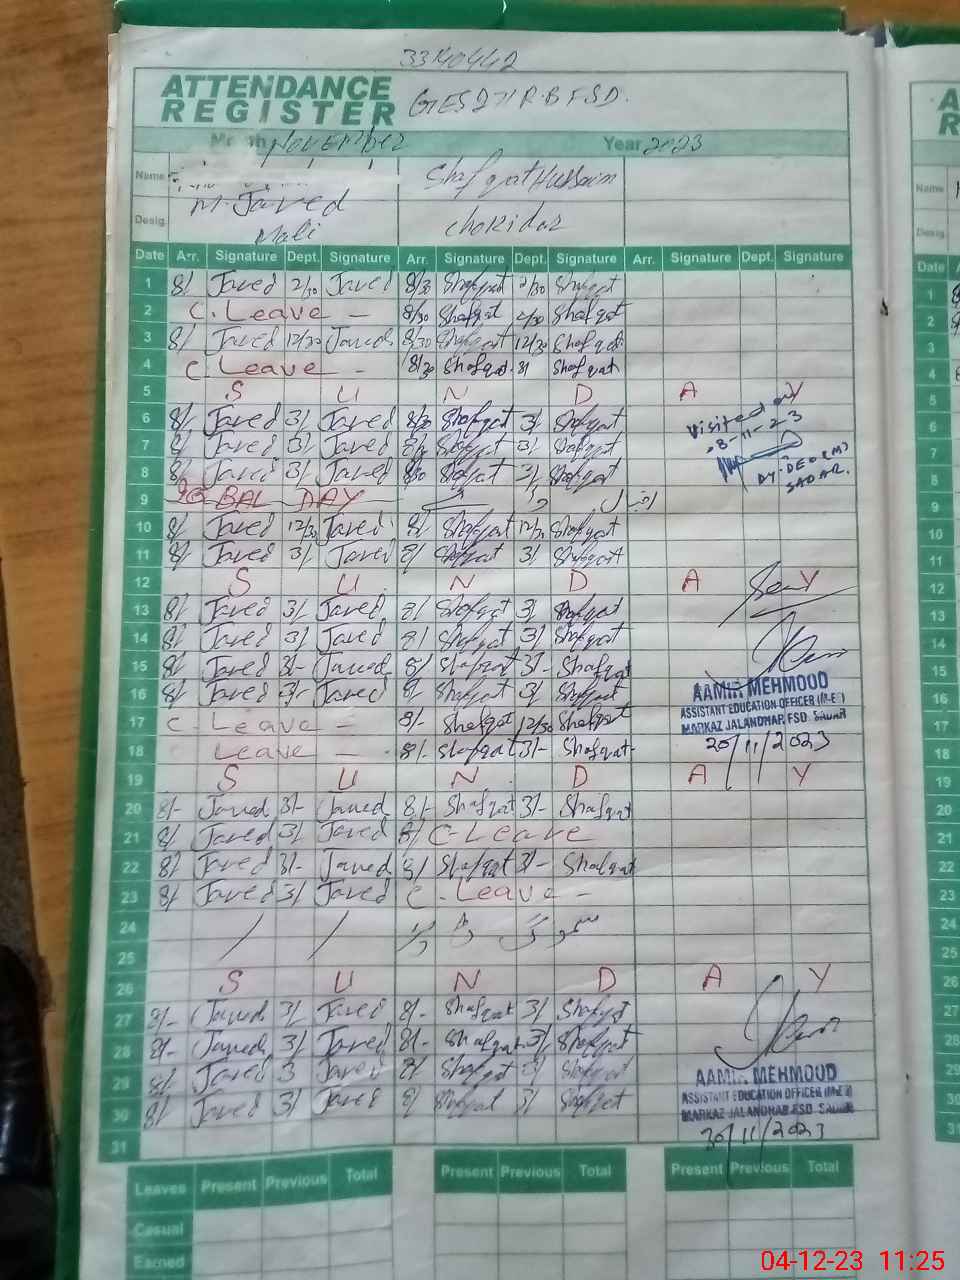 33140442
ATTENDANCE
REGISTER GES 271 R.B FSD.
Month November Year 2023
Name Shafqat Hussain
M. Javed
Desig. Mali Chokidar
Date Arr. Signature Dept. Signature Arr. Signature Dept. Signature Arr. Signature Dept. Signature
1 8/ Javed 2/30 Javed 8/30 Shafqat 2/30 Shafqat
2 C. Leave - 8/30 Shafqat 2/30 Shafqat
3 8/ Javed 12/30 Javed 8/30 Shafqat 12/30 Shafqat
4 C Leave - 8/30 Shafqat 3/ Shafqat
5 S U N D A Y
6 8/ Javed 3/ Javed 8/30 Shafqat 3/ Shafqat Visited on
7 8/ Javed 3/ Javed 8/ Shafqat 3/ Shafqat 8-11-23
8 8/ Javed 3/ Javed 8/30 Shafqat 3/ Shafqat DY. DEO (M)
SADAR.
9 IQBAL DAY
10 8/ Javed 12/30 Javed 8/ Shafqat 12/30 Shafqat
11 8/ Javed 3/ Javed 8/ Shafqat 3/ Shafqat
12 S U N D A Y
13 8/ Javed 3/ Javed 8/ Shafqat 3/ Shafqat
14 8/ Javed 3/ Javed 8/ Shafqat 3/ Shafqat
15 8/ Javed 3/- Javed 8/ Shafqat 3/- Shafqat
16 8/ Javed 3/- Javed 8/ Shafqat 3/ Shafqat
AAMIR MEHMOOD
ASSISTANT EDUCATION OFFICER (M-EE)
MARKAZ JALANDHAR, FSD. SADAR
20/11/2023
17 C - Leave - 8/- Shafqat 12/30 Shafqat
18 Leave - 8/- Shafqat 3/- Shafqat
19 S U N D A Y
20 8/- Javed 3/- Javed 8/- Shafqat 3/- Shafqat
21 8/ Javed 3/ Javed 8/ C-Leave
22 8/ Javed 3/- Javed 8/ Shafqat 3/- Shafqat
23 8/ Javed 3/ Javed C. Leave -
24
25
26 S U N D A Y
27 8/- Javed 3/ Javed 8/- Shafqat 3/ Shafqat
28 8/- Javed 3/ Javed 8/- Shafqat 3/ Shafqat
29 8/ Javed 3 Javed 8/ Shafqat 3/ Shafqat
30 8/ Javed 3/ Javed 8/ Shafqat 3/ Shafqat
31
AAMIR MEHMOOD
ASSISTANT EDUCATION OFFICER (M-EE)
MARKAZ JALANDHAR FSD. SADAR
30/11/2023
Leaves Present Previous Total Present Previous Total Present Previous Total
Casual
Earned
04-12-23 11:25